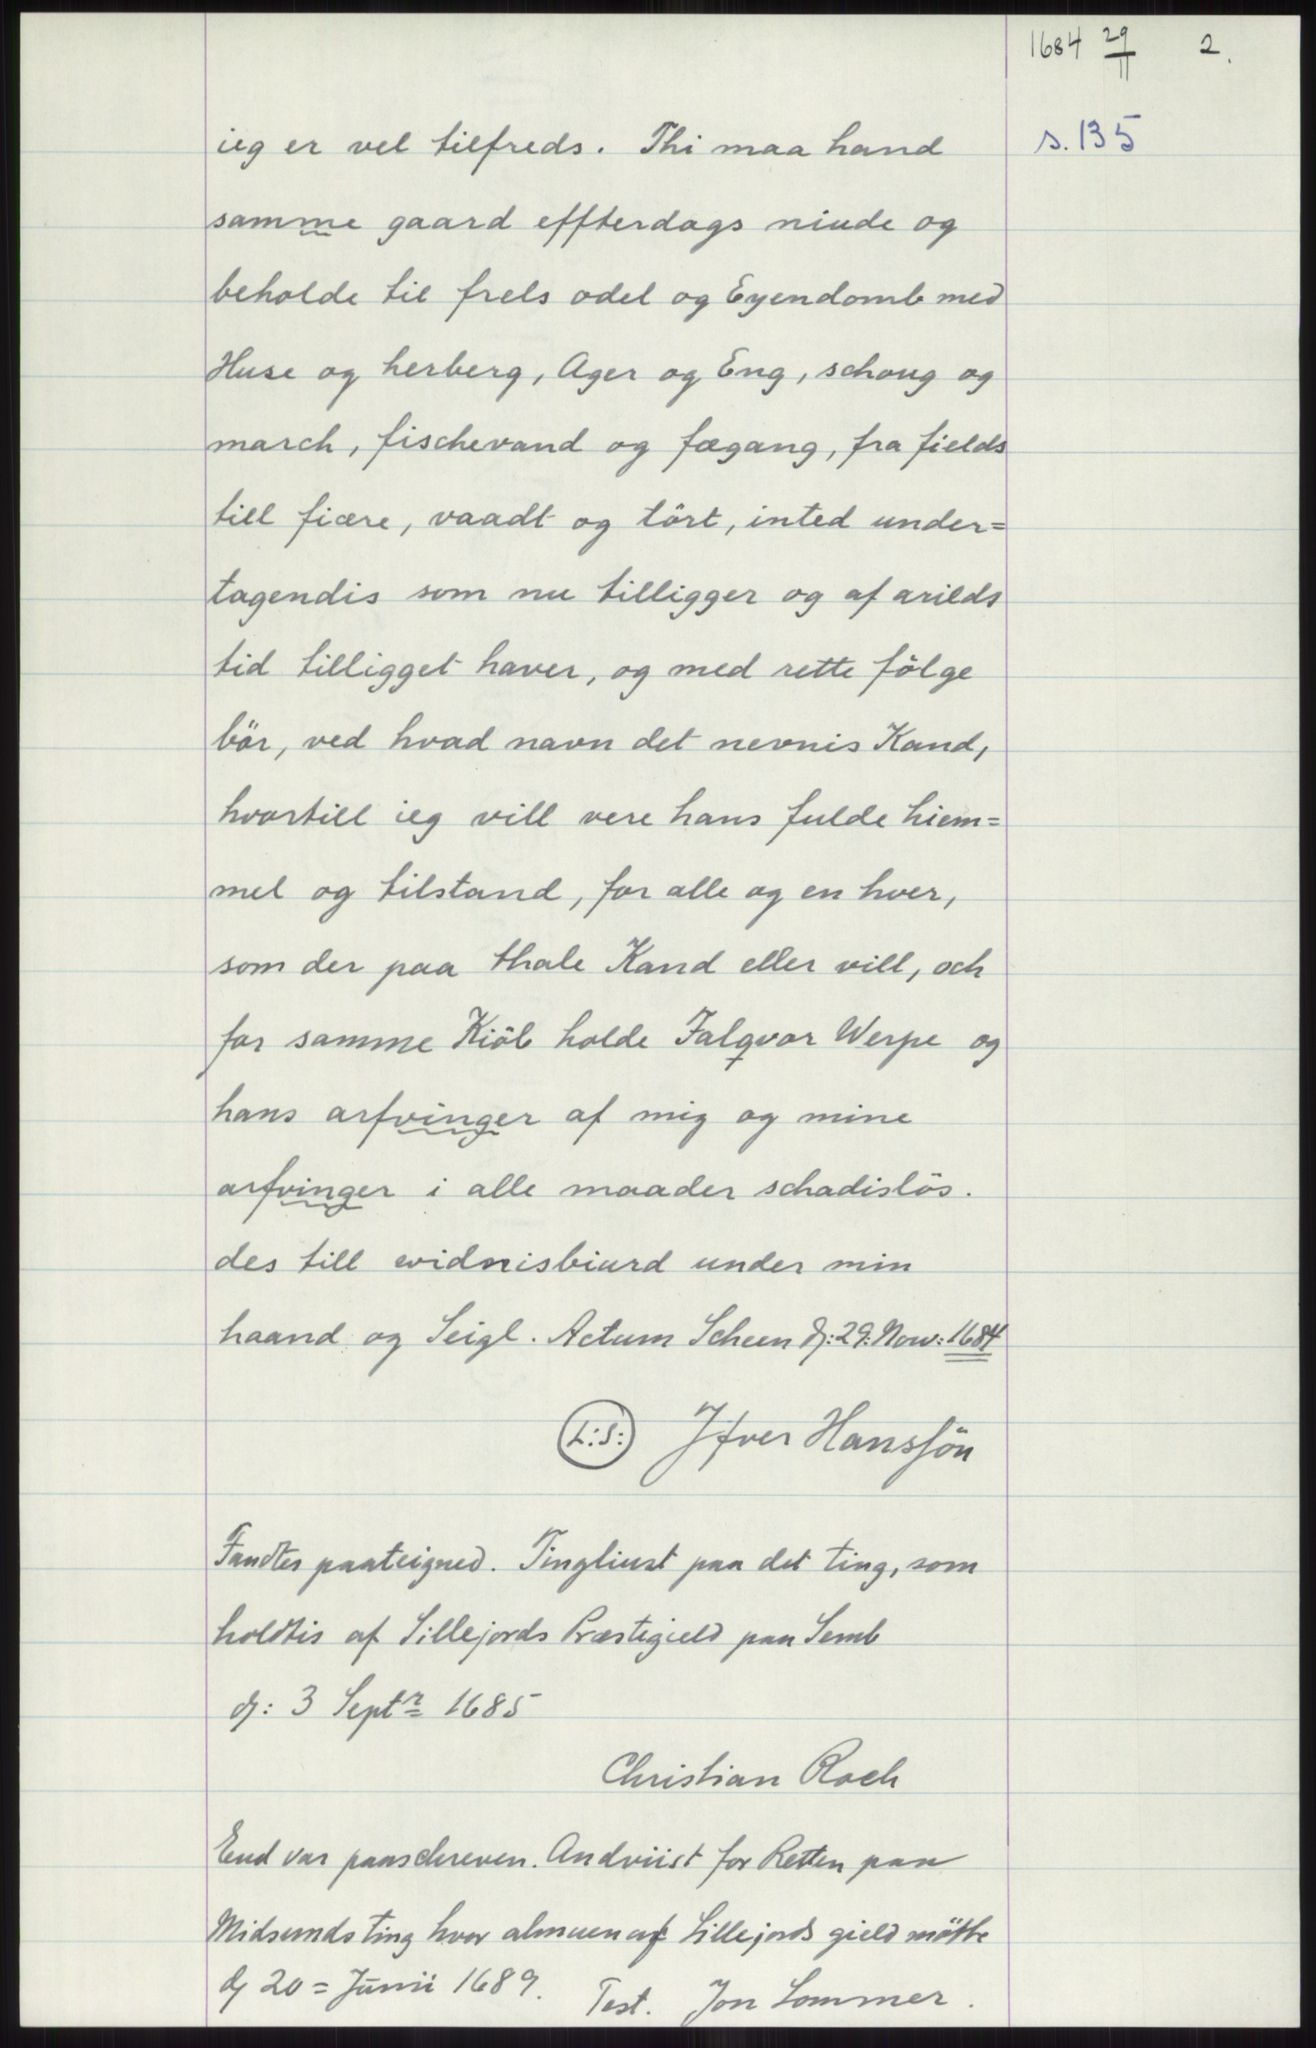 1684 29/11 2.
s. 135
ieg er vel tilfreds. Thi maa hand
samme gaard effterdags niude og
beholde til frels odel og Eyendomb med
Huse og herberg, Ager og Eng, schoug og
march, fischevand og fægang, fra fields
till fiære, vaadt og tört, inted under=
tagendis som nu tilligger og af arilds
tid tilligget haver, og med rette fölge
bör, ved hvad navn det nevnis Kand,
hvortill ieg vill vere hans fulde hiem=
mel og tilstand, for alle og en hver,
som der paa thale Kand eller vill, och
for samme Kiöb holde Falqvor Werpe og
hans arfvinger af mig og mine
arfvinger i alle maader schadislös.
des till widnisbiurd under min
haand og Seigl. Actum Scheen d: 29: Now: 1684
L:S: Ifver Hanssön
Fandtes paateigned. Tingliust paa det ting, som
holdtis af Sillejords Præstegield paa Semb
d: 3 Septr 1685
Christian Roch
End var paaschreven. Andviist for Retten paa
Midsunds ting hvor almuen af Sillejords gield mötte
d 20 = Junii 1689. Test. Jon Sommer.